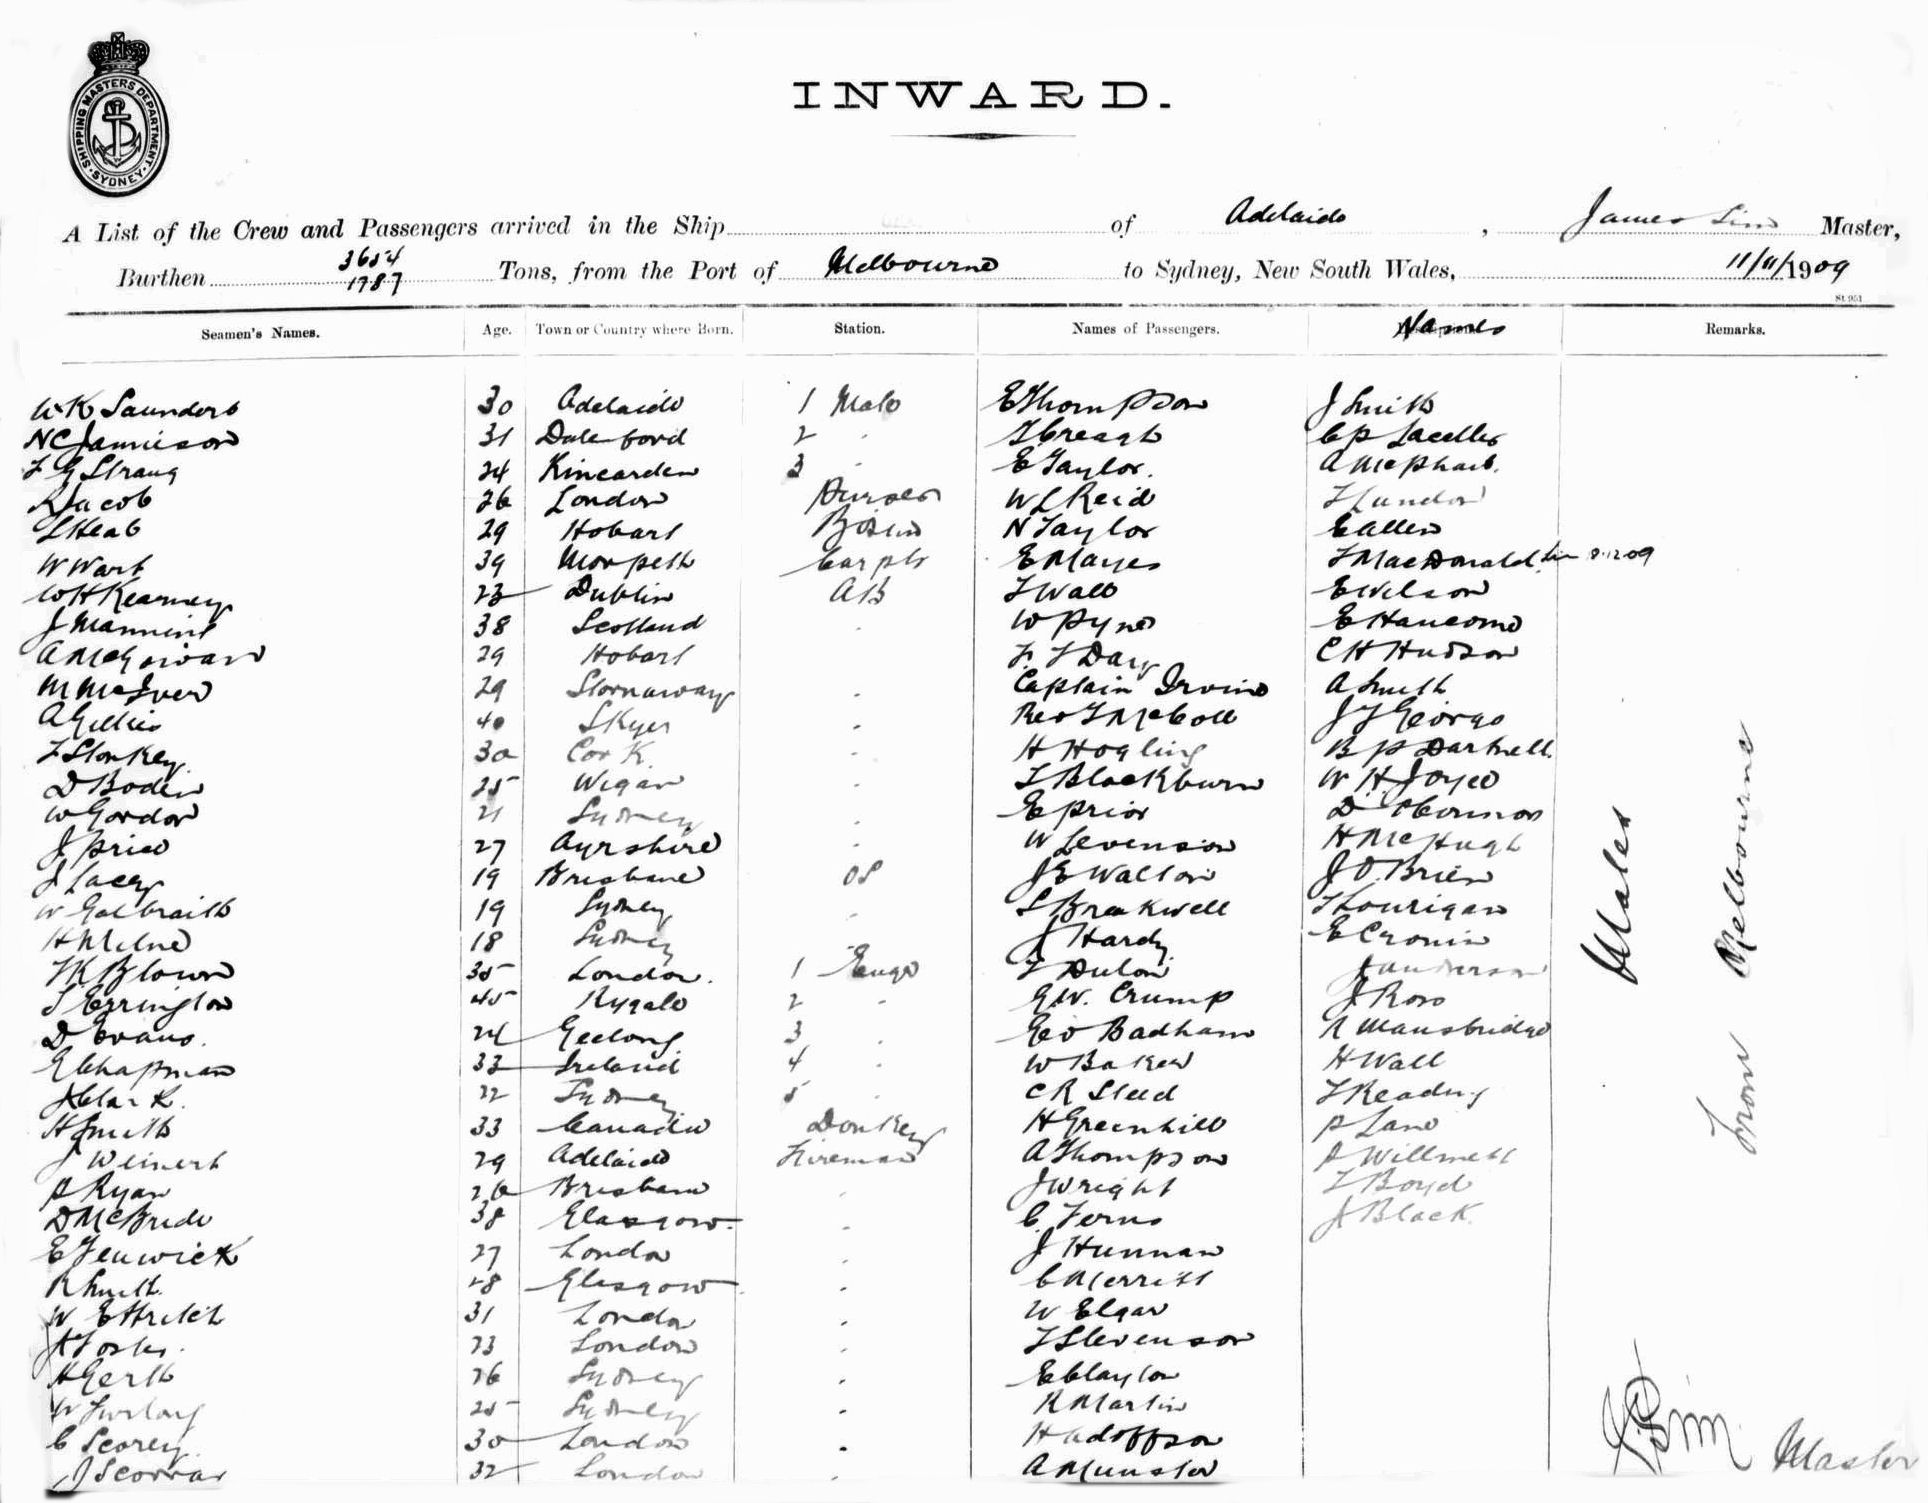 SHIPPING MASTERS DEPARTMENT
SYDNEY
INWARD.
A List of the Crew and Passengers arrived in the Ship of Adelaide, James Sim Master,
Burthen 3654 1787 Tons, from the Port of Melbourne to Sydney, New South Wales, 11/11/1909
St 951
Seamen's Names. Age. Town or Country where Born. Station. Names of Passengers. Names Remarks.
W K Saunders 30 Adelaide 1 Mate E Thompson J Smith
N C Jamieson 31 2 T Creagh C P
F G Strang 24 Kincarden 3 E Taylor. A McPhail.
R Jacob 26 London Purser W L Reid T Lundon
29 Hobart Bosun N Taylor E Allen
W Warb 39 Morpeth Carptr E Mayes T MacDonald Sim 8.12.09
W H Kearney 23 Dublin AB T Wall E Wilson
J Manning 38 Scotland W Pyne E Hancome
A McGowan 29 Hobart F T Day C H Hudson
M McIver 29 Stornaway Captain Irvine A Smith
A Gillies 40 Skye Rev T McColl J T George
30 Cork H Hogling B P Dartnell.
D Boden 25 Wigan T Blackburn W H Joyce
W Gordon 21 Sydney E Prior D OConnor
J Price 27 Ayrshire W Levenson H McHugh
J Lacey 19 Brisbane OS J E Walton J O.Brien
W Galbraith 19 Sydney S Breakwell T Lourigan
H Milne 18 Sydney J Hardy E Cronin
35 London. 1 Enge T J Anderson
S Errington 45 2 G.W. Crump J Ross
D Evans. 24 Geelong 3 Geo Badham R Mansbridge
G Chapman 33 Ireland 4 W Baker H Wall
A Clark. 22 Sydney 5 C R Steed T Reading
H Smith 33 Canada Donkey H Greenhill P Lane
J Weinert 29 Adelaide Fireman A Thompson P Willmett
P Ryan 26 Brisbane J Wright T Boyd
D McBride 38 Glasgow C. Ferns J Black.
E Fenwick 27 London J Hunnan
R Smith 28 Glasgow C Merritt
W 31 London W Elgar
A Foster. 23 London T Stevenson
H Gerth 26 Sydney E Clayton
W Furlong 25 Sydney R Martin
C Scorey. 30 London H Adoffson
32 London A Munster
Males
From Melbourne
J Sim Master